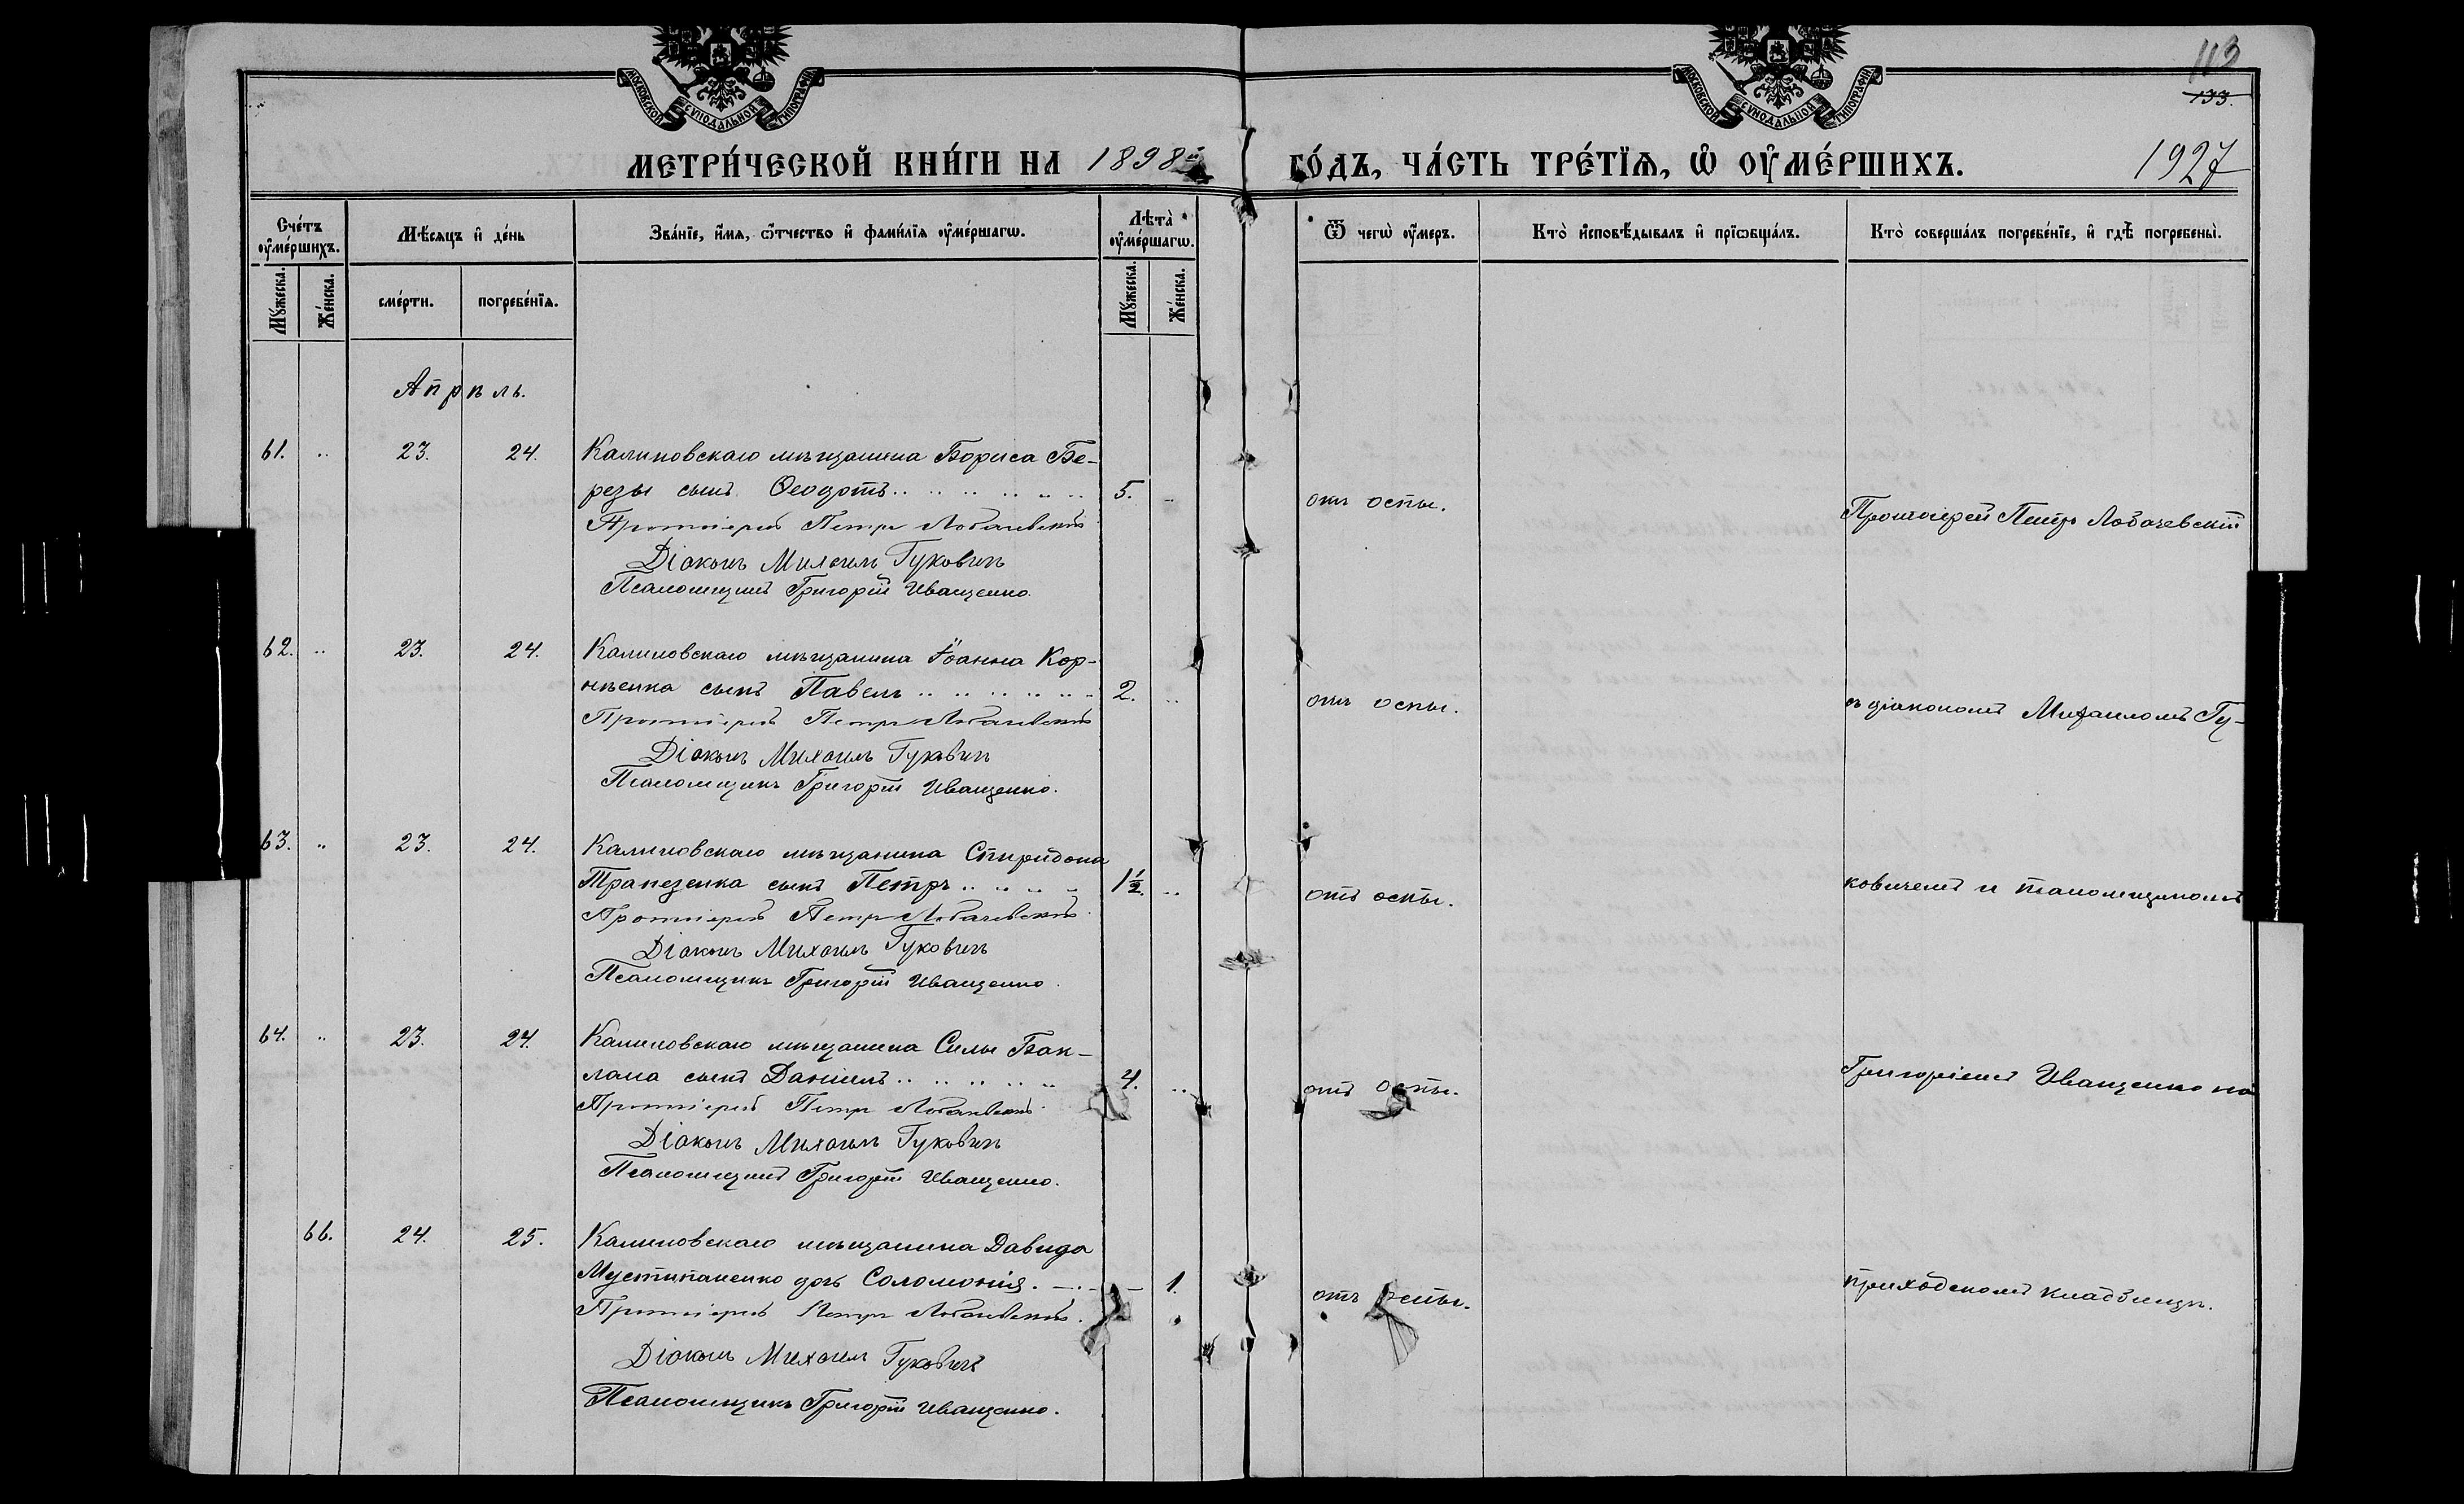 МОСКОВСКОЙ СѴНОДАЛЬНОЙ ТИПОГРАФІИ
МОСКОВСКОЙ СѴНОДАЛЬНОЙ ТИПОГРАФІИ
113
133.
МЕТРИ́ЧЕСКОЙ КНИ́ГИ НА 1898й
ГО́ДЪ, ЧА́СТЬ ТРЕ́ТЇѦ, Ѡ҆ ОУ҆МЕ́РШИХЪ.
1927
Сче́тъ оу҆ме́ршихъ.
Мꙋ́жеска.
Же́нска.
Мѣ́сѧцъ и҆ де́нь
сме́рти.
погребе́нїѧ.
Зва́нїе, и҆́мѧ, ѻ҆́тчество и҆ фами́лїѧ оу҆ме́ршагѡ.
Лѣта̀ оу҆ме́ршагѡ.
Мꙋ́жеска.
Же́нска.
Ѿ чегѡ̀ оу҆́меръ.
Кто̀ и҆сповѣ́дывалъ и҆ прїѡбща́лъ.
Кто̀ соверша́лъ погребе́нїе, и҆ гдѣ̀ погребены̀.
Апрѣль.
61. .. 23. 24. Калиновскаго мѣщанина Бориса Бе-
резы сынъ Ѳеодотъ .. .. .. .. .. .. 5. .. отъ оспы.
Протоіерей Петръ Лобачевскій
Діаконъ Михаилъ Гуковичъ
Псаломщикъ Григорій Иващенко.
Протоіерей Петръ Лобачевскій
62. .. 23. 24. Калиновскаго мѣщанина Іоанна Кор-
нѣенка сынъ Павелъ .. .. .. .. .. .. 2. .. отъ оспы.
Протоіерей Петръ Лобачевскій
Діаконъ Михаилъ Гуковичъ
Псаломщикъ Григорій Иващенко.
съ діакономъ Михаиломъ Гу-
63. .. 23. 24. Калиновскаго мѣщанина Спиридона
Трапезенка сынъ Петръ .. .. .. .. 1½. .. отъ оспы.
Протоіерей Петръ Лобачевскій
Діаконъ Михаилъ Гуковичъ
Псаломщикъ Григорій Иващенко.
ковичемъ и псаломщикомъ
64. .. 23. 24. Калиновскаго мѣщанина Силы Бак-
лана сынъ Даніилъ .. .. .. .. .. .. 4. .. отъ оспы.
Протоіерей Петръ Лобачевскій
Діаконъ Михаилъ Гуковичъ
Псаломщикъ Григорій Иващенко.
Григоріемъ Иващенко на
66. 24. 25. Калиновскаго мѣщанина Давида
дочь Соломонія. — 1. отъ оспы.
Протоіерей Петръ Лобачевскій.
Діаконъ Михаилъ Гуковичъ
Псаломщикъ Григорій Иващенко.
приходскомъ кладбищѣ.